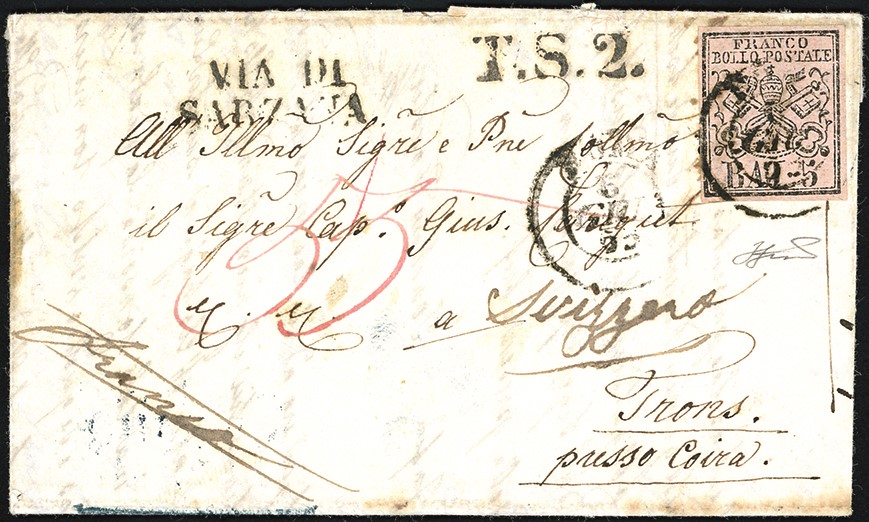 VIA DI
SARZANA
T.S.2.
FRANCO
BOLLO POSTALE
BAJ-5
All' Illmo Sigre e Pne Collmo
il Sigre Cap. Gius.
a Svizzera
Trons.
presso Coira.
Franca
55
6